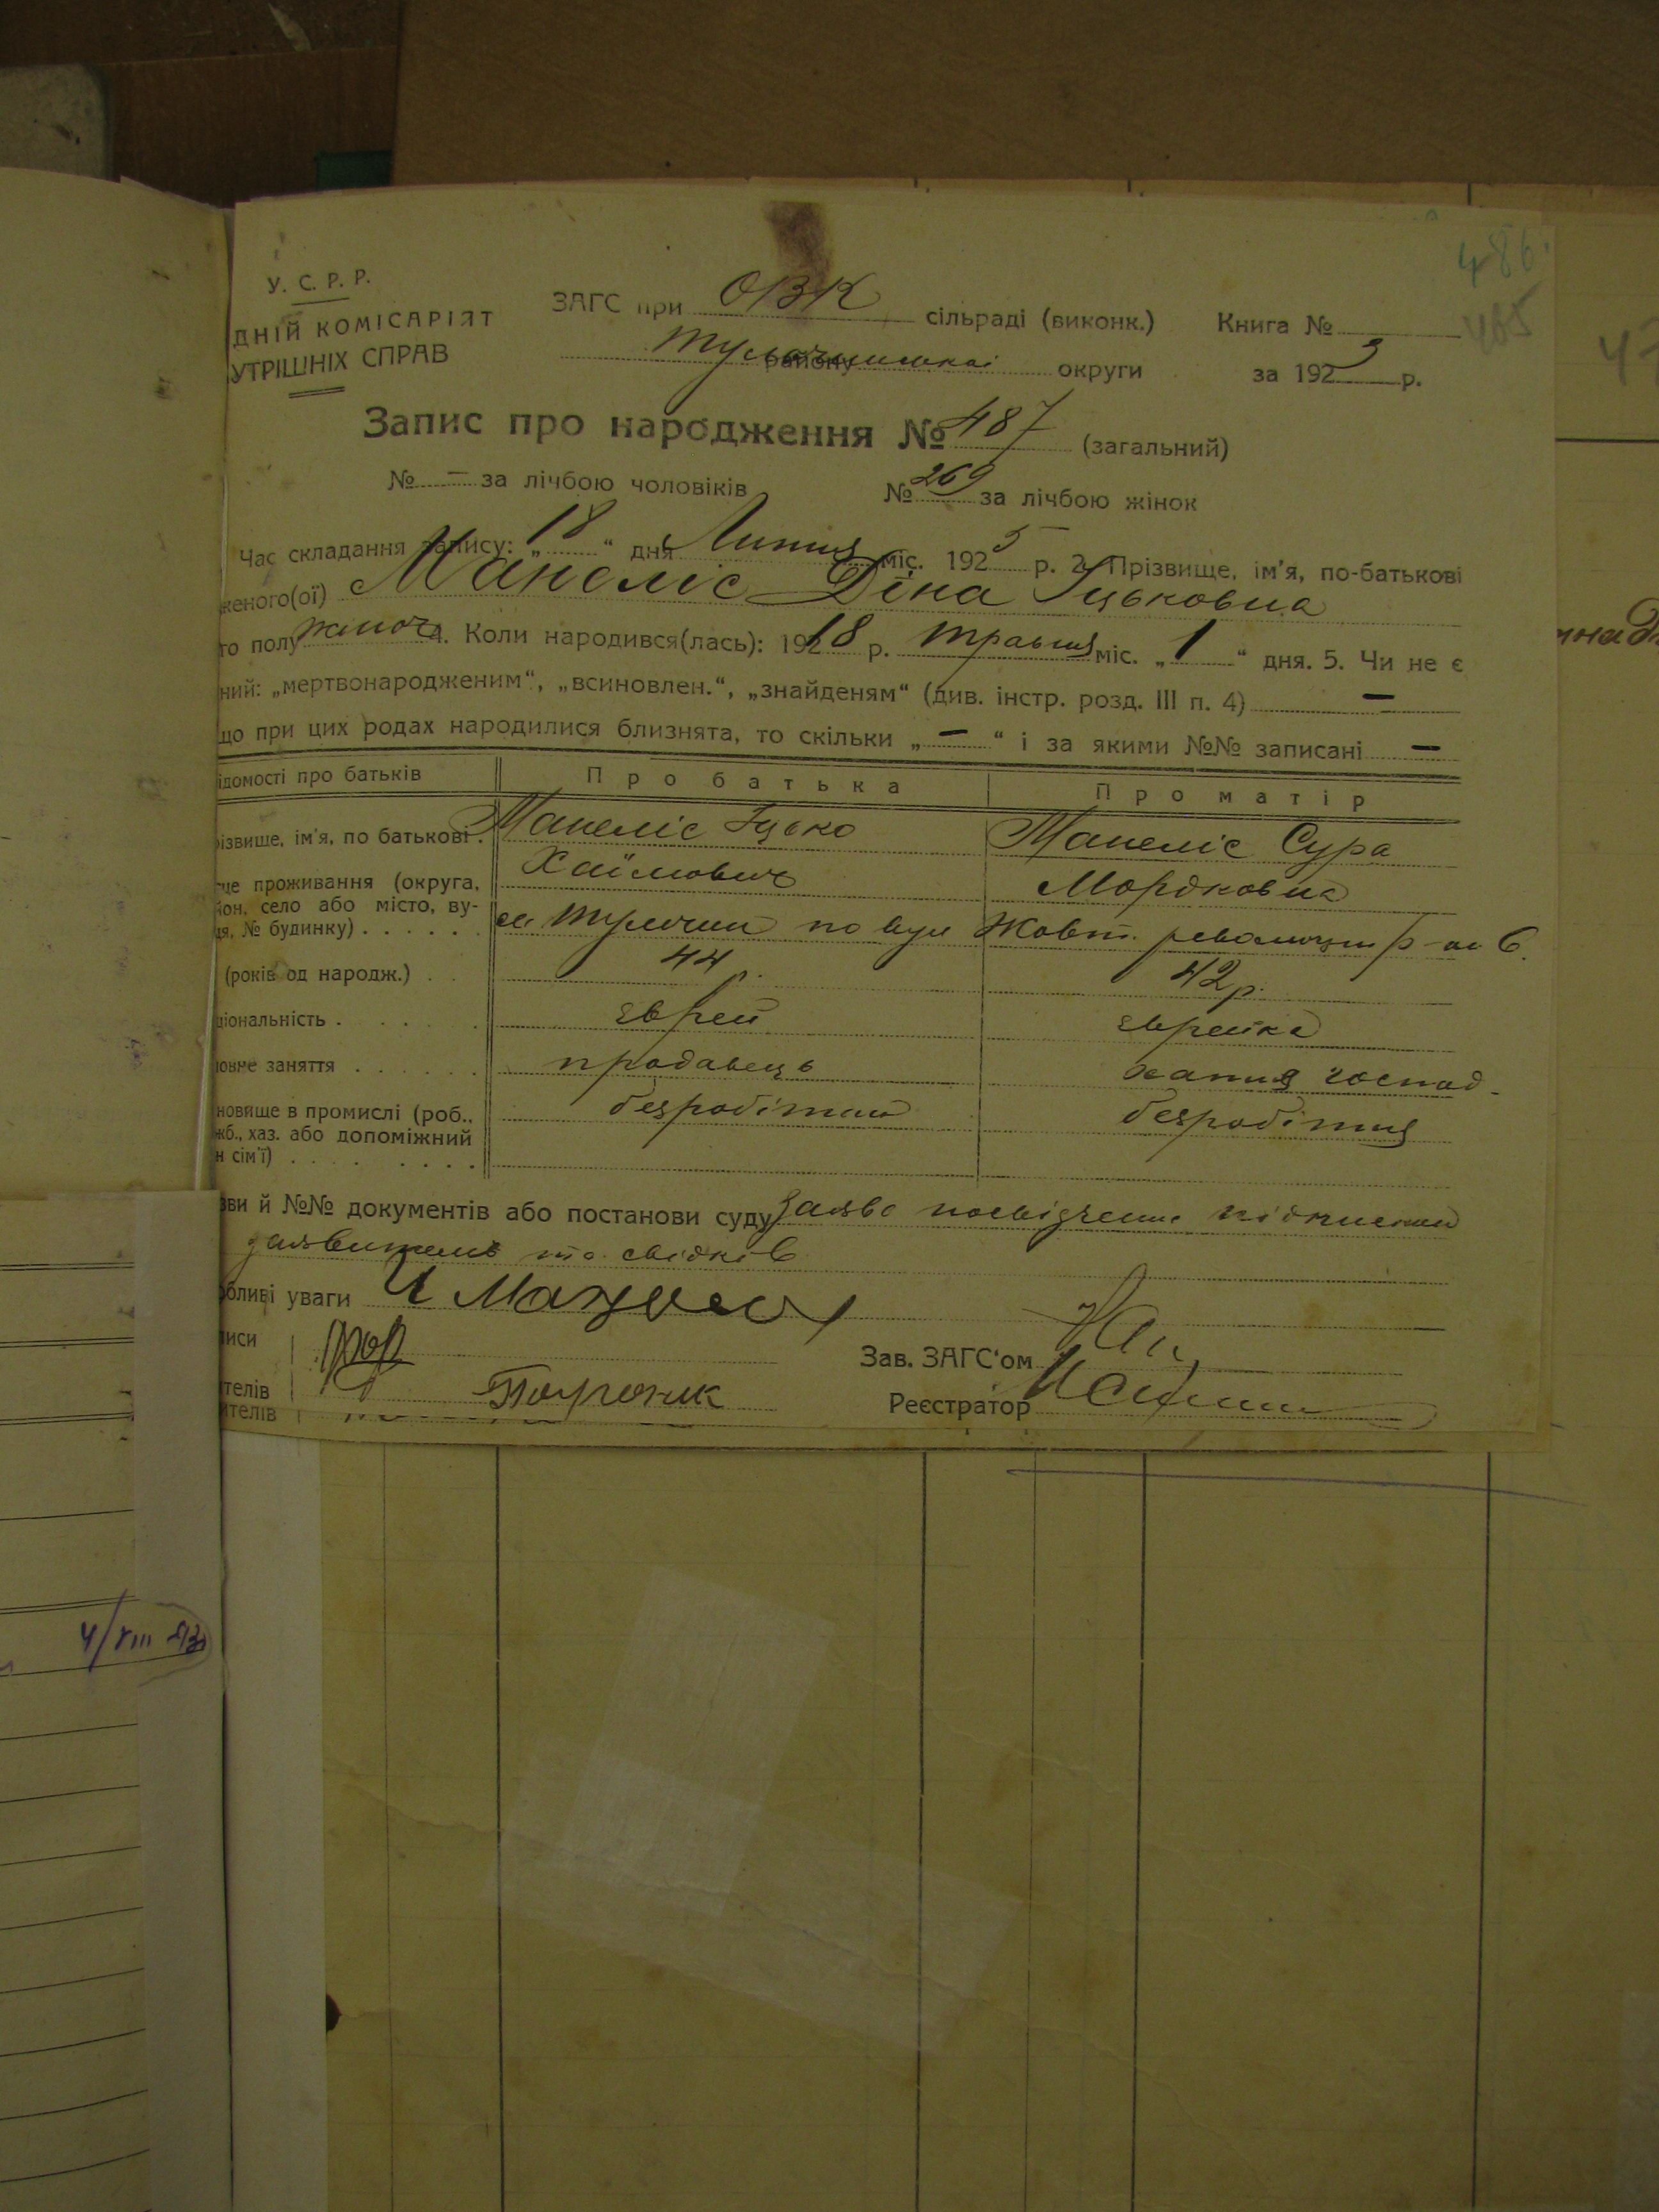 486.
465
У. С. Р. Р.
ДНІЙ КОМІСАРІЯТ
УТРІШНІХ СПРАВ
ЗАГС при ОВК сільраді (виконк.) Книга №
району округи за 192 р.
Запис про народження № 487 (загальний)
№ — за лічбою чоловіків № 269 за лічбою жінок
Час складання запису: „18“ дня Липня міс. 1925 р. 2. Прізвище, ім'я, по-батькові
женого(ої) Манеліс Діна Іцьковна
го полу жіноч. 4. Коли народився(лась): 1918 р. травня міс. „1“ дня. 5. Чи не є
ний: „мертвонародженим“, „всиновлен.“, „знайденям“ (див. інстр. розд. III п. 4) —
що при цих родах народилися близнята, то скільки „—“ і за якими №№ записані —
ідомості про батьків Про батька Про матір
різвище, ім'я, по батькові . Манеліс Іцько Манеліс Сура
Хаїмович Мордковна
це проживання (округа,
йон, село або місто, ву-
ця, № будинку) . . . . . м Тульчин по вул Жовт. революции 6.
(років од народж.) . . 44 р. 42 р.
ціональність . . . . . єврей єврейка
ловне заняття . . . . . . продавець хатня господ-
новище в промислі (роб., безробітний безробітня
жб., хаз. або допоміжний
н сім'ї) . . . . . . .
зви й №№ документів або постанови суду заява посвідчена підписами
заявителів та свідків
обливі уваги
писи
Зав. ЗАГС'ом
телів
Реєстратор
ителів
4/VIII